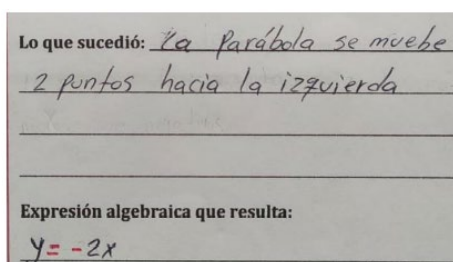 Lo que sucedió: La Parábola se muebe
2 puntos hacia la izquierda
Expresión algebraica que resulta:
y = -2x